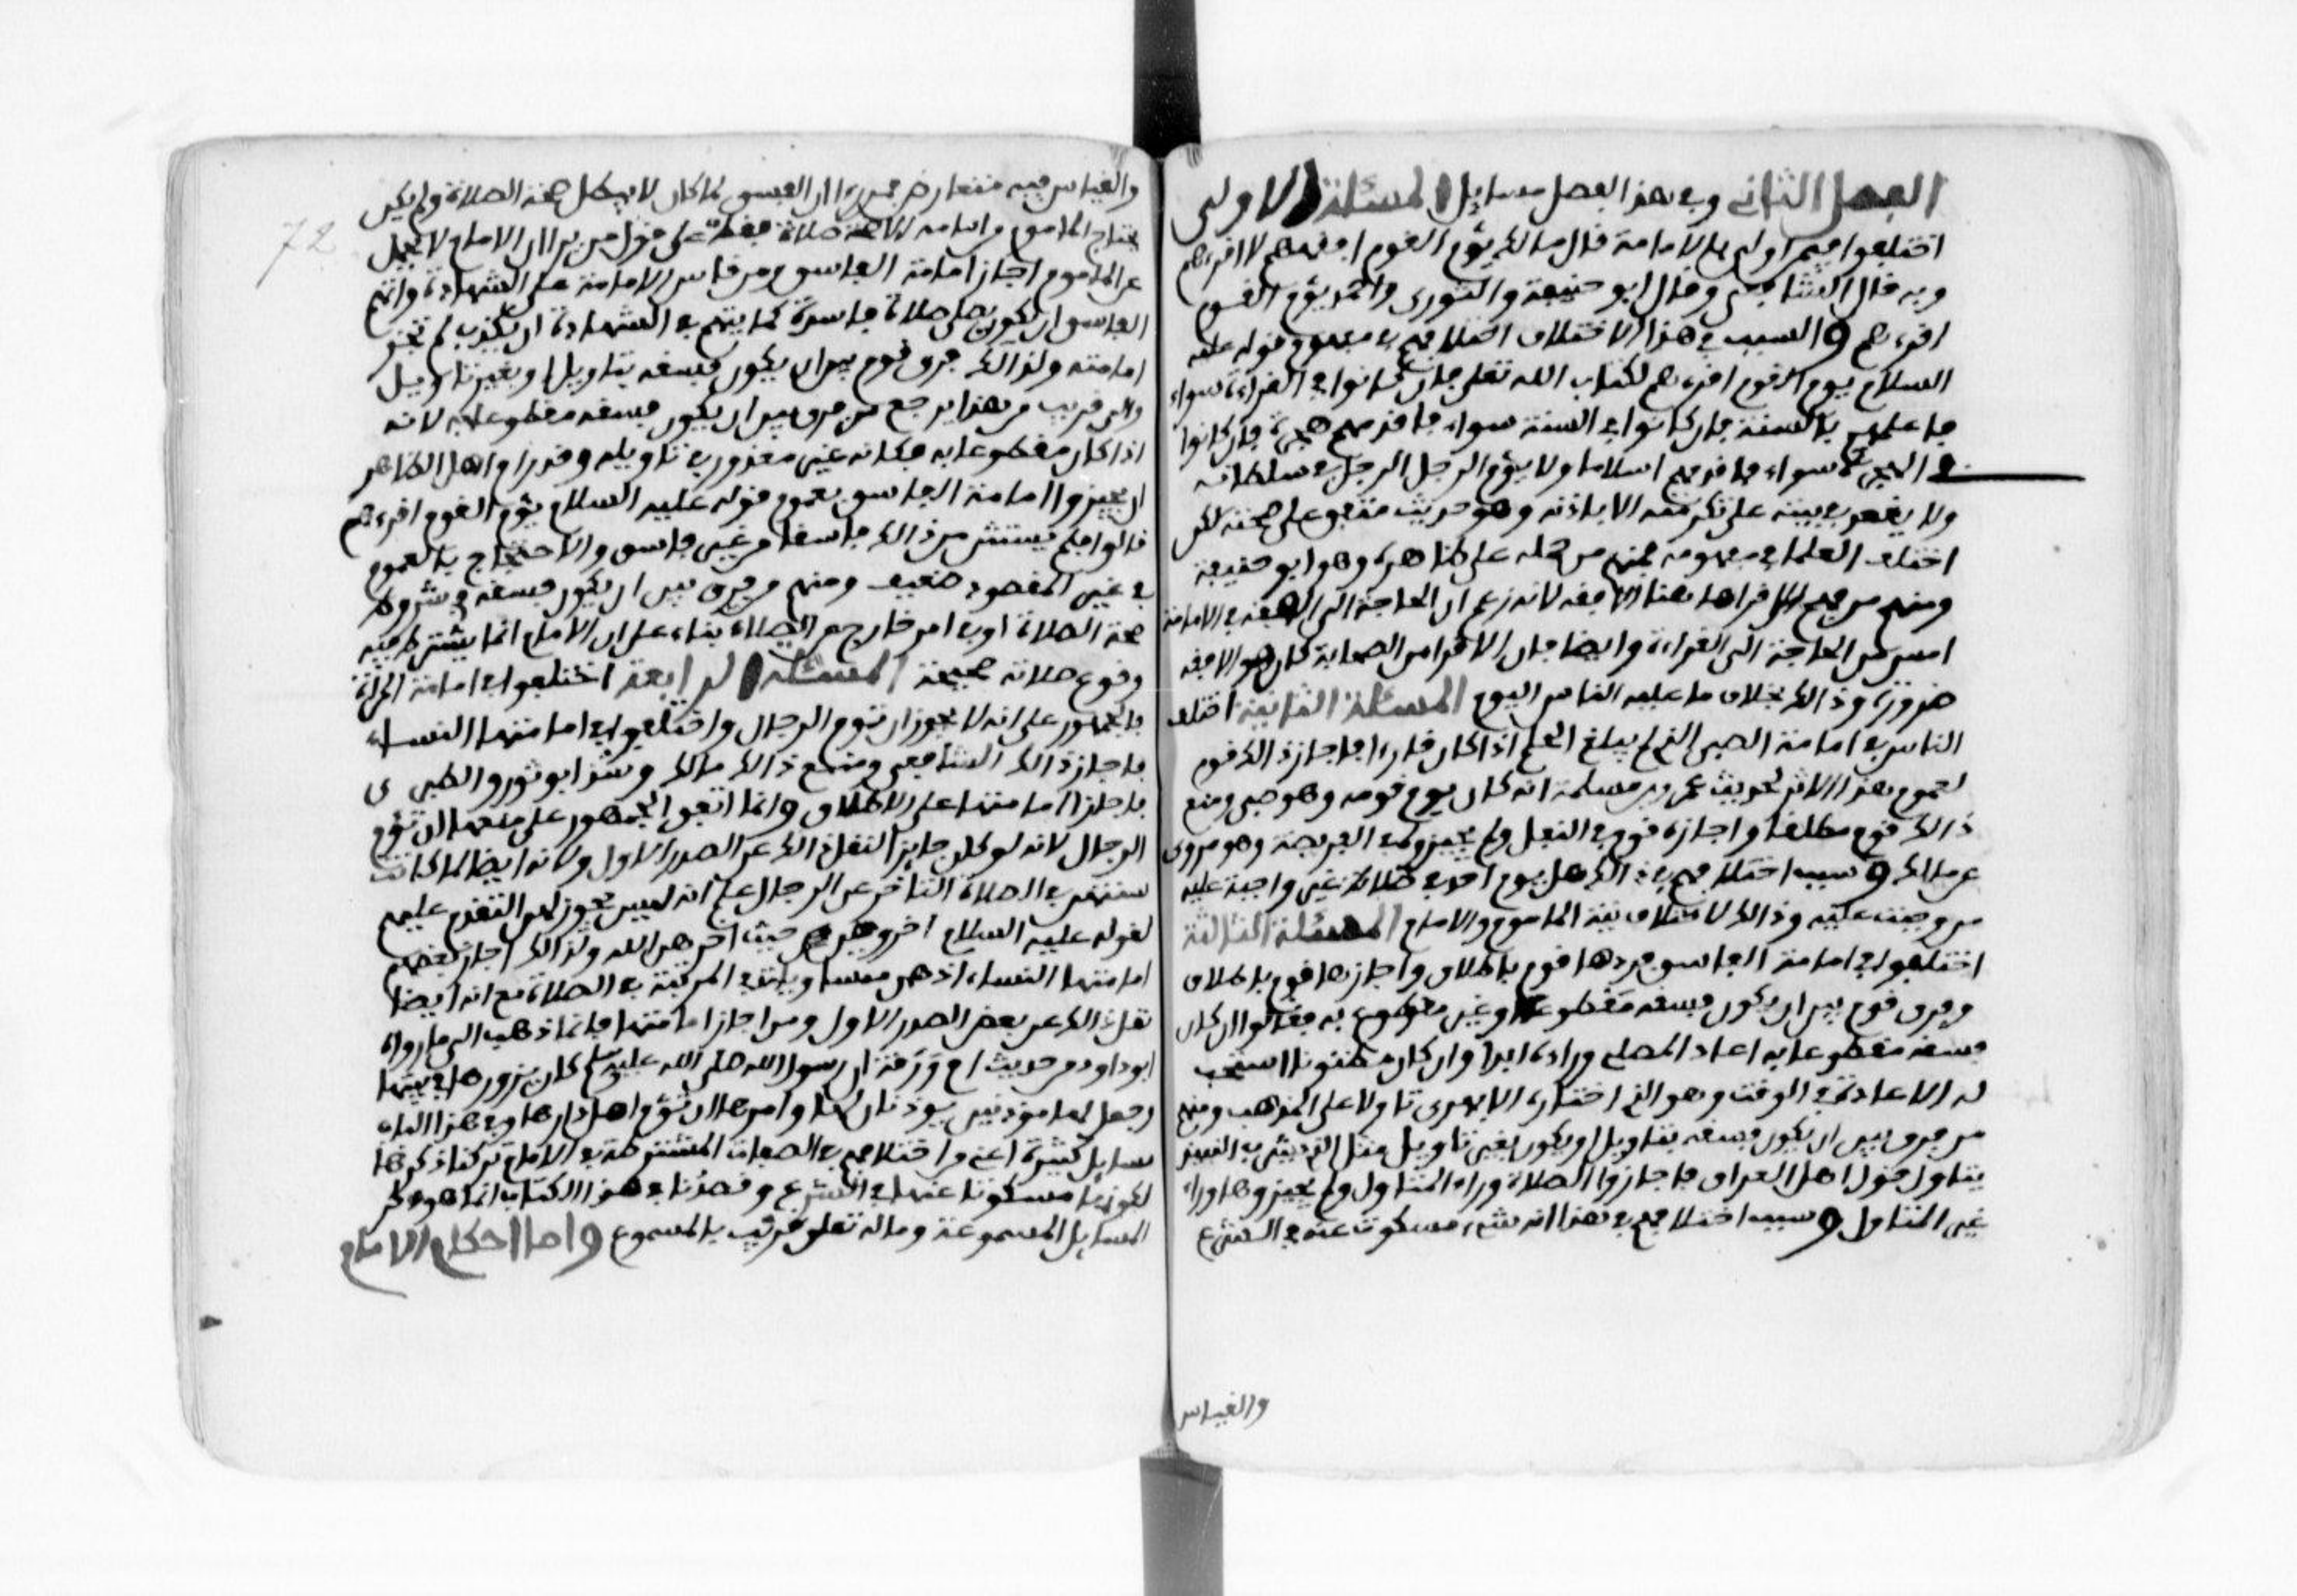 الفصل الثاني وفي هذا الفصل مسايل المسئلة الاولى
اختلفوا فيمن اولى بالامامة فال مالك يؤم القوم افقههم لا افرءهم
وبه فال الشافعي وفال ابو حنيفة والثوري واحمد يؤم القوم
افرءهم والسبب في هذا الاختلاف اختلافهم في مفهوم قوله عليه
السلام يوم القوم افرءهم لكتاب الله تعلى فان كانوا في القراءة سواء
فاعلمهم بالسنة فان كانوا في السنة سواء فاقدمهم هجرة فان كانوا
في الهجرة سواء فاقدمهم اسلاما ولا يؤم الرجل الرجل في سلطانه
ولا يقعد في بيته على تكرمته الا باذنه وهو حديث متفق على صحته لكن
اختلف العلما في مفهومه فمنهم من حمله على ظاهره وهو ابو حنيفة
ومنهم من فهم من الاقرا هاهنا الافقه لانه زعم ان الحاجة الى الفقه في الامامة
امس من الحاجة الى القراءة وايضا فان الاقرا من الصحابة كان هو الافقه
ضرورة وذالك بخلاف ما عليه الناس اليوم المسئلة الثانية اختلف
الناس في امامة الصبي الذي لم يبلغ الحلم اذا كان قارءا فاجاز ذالك قوم
لعموم هذا الاثر لحديث عمرو بن مسلمة انه كان يوم قومه وهو صبي ومنع
ذالك قوم مطلقا واجازه قوم في النفل ولم يجيزوه في الفريضة وهو مروى
عن مالك وسبب اختلافهم في ذالك هل يوم احد في صلاة غير واجبة عليه
من وجبت عليه وذالك لاختلاف نية الماموم والامام المسئلة الثالثة
اختلفوا في امامة الفاسق فردها قوم باطلاق واجازها قوم باطلاق
وفرق قوم بين ان يكون فسقه مقطوعا او غير مقطوع به فقالوا ان كان
فسقه مقطوعا به اعاد المصلي وراءه ابدا وان كان مظنونا استحب
له الاعادة في الوقت وهو الذي اختاره الابهري تاولا على المذهب ومنهم
من فرق بين ان يكون فسقه بتاويل او يكون بغير تاويل مثل الذي يشرب النبيذ
يتاول قول اهل العراق فاجازوا الصلاة وراء المتاول ولم يجيزوها وراء
غير المتاول وسبب اختلافهم في هذا انه شيء مسكوت عنه في الشرع
والقياس
72
والقياس فيه متعارض فمن رءا ان الفسق لما كان لا يبطل صحة الصلاة ولم يكن
يحتاج الماموم من امامه الا صحة صلاته فقط على قول من يرا ان الامام لا يحمل
عن الماموم اجاز امامة الفاسق ومن قاس الامامة على الشهادة واتهم
الفاسق ان يكون يصلي صلاة فاسدة كما يتهم في الشهادة ان يكذب لم تجز
امامته ولذالك فرق قوم بين ان يكون فسقه بتاويل او بغير تاويل
والى قريب من هذا يرجع من فرق بين ان يكون فسقه مقطوعا به لانه
اذا كان مقطوعا به فكانه غير معذور في تاويله وقد رام اهل الظاهر
ان يجيزوا امامة الفاسق بعموم قوله عليه السلام يؤم القوم افرءهم
فالوا فلم يستثن من ذالك فاسقا من غير فاسق والاحتجاج بالعموم
في غير المقصود ضعيف ومنهم من فرق بين ان يكون فسقه في شروط
صحة الصلاة او في امر خارج عن الصلاة بناء على ان الامام انما يشترط فيه
وقوع صلاته صحيحة المسئلة الرابعة اختلفوا في امامة المراة
فالجمهور على انه لا يجوز ان تؤم الرجال واختلفوا في امامتها النساء
فاجاز ذالك الشافعي ومنع ذالك مالك وشذ ابو ثور والطبري
فاجازا امامتها على الاطلاق وانما اتفق الجمهور على منعها ان تؤم
الرجال لانه لو كان جايزا لنقل ذالك عن الصدر الاول ولانه ايضا لما كانت
سنتهن في الصلاة التاخر عن الرجال علم انه ليس يجوز لهن التقدم عليهم
لقوله عليه السلام اخروهن حيث اخرهن الله ولذالك اجاز بعضهم
امامتها النساء اذ هن متساويات في المرتبة في الصلاة مع انه ايضا
نقل ذالك عن بعض الصدر الاول ومن اجاز امامتها فانما ذهب الى ما رواه
ابو داود من حديث ام ورقة ان رسول الله صلى الله عليه وسلم كان يزورها في بيتها
وجعل لها موذنين يوذنان لها وامرها ان تؤم اهل دارها وفي هذا الباب
مسايل كثيرة اعني من اختلافهم في الصفات المشترطة في الامام تركنا ذكرها
لكونها مسكوتا عنها في الشرع وقصدنا في هذا الكتاب انما هو ذكر
المسايل المسموعة وما له تعلق قريب بالمسموع واما احكام الامام